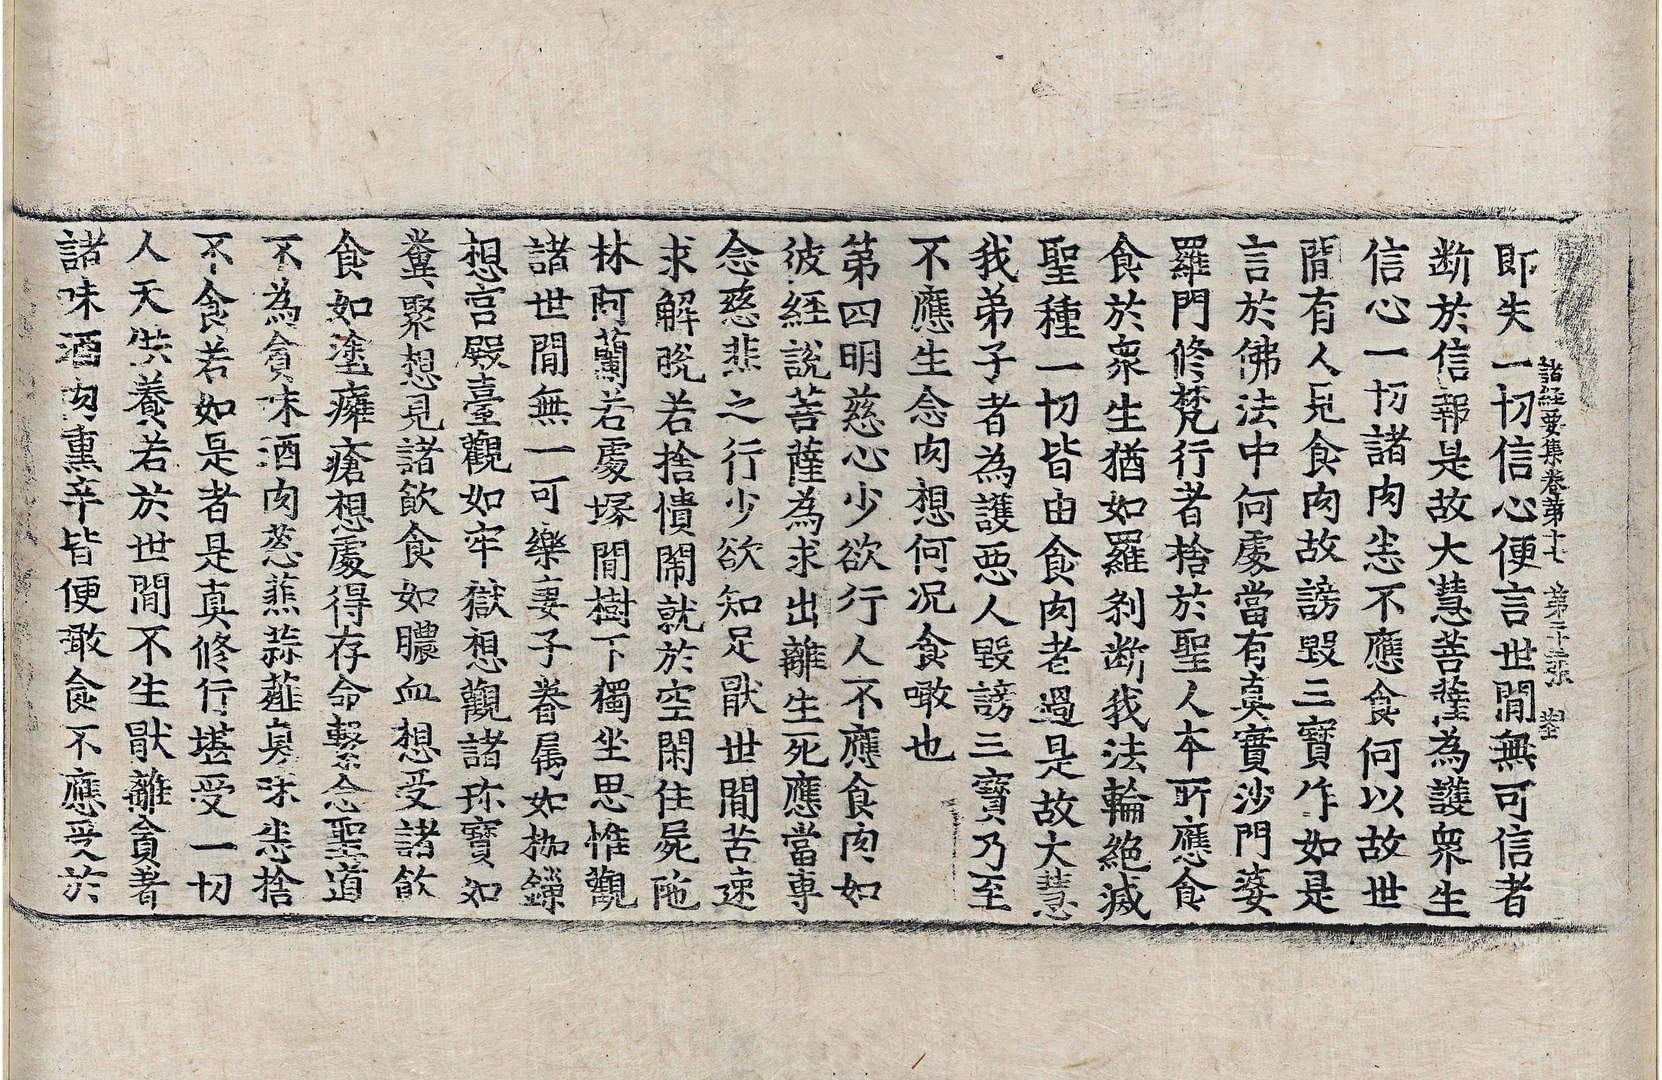 諸經要集卷第十七 第三十三張 對
即失一切信心便言世間無可信者
断於信根是故大慧菩薩為護衆生
信心一切諸肉悉不應食何以故世
間有人見食肉故謗毀三寶作如是
言於佛法中何處當有真實沙門婆
羅門修梵行者捨於聖人本所應食
食於衆生猶如羅剎断我法輪絕滅
聖種一切皆由食肉者過是故大慧
我弟子者為護惡人毀謗三寶乃至
不應生念肉想何况食噉也
第四明慈心少欲行人不應食肉如
彼經說菩薩為求出離生死應當專
念慈悲之行少欲知足厭世間苦速
求解脫若捨憒閙就於空閑住屍陁
林阿蘭若處塚間樹下獨坐思惟觀
諸世間無一可樂妻子眷属如枷鎖
想宫殿臺觀如牢獄想觀諸珎寶如
糞聚想見諸飲食如膿血想受諸飲
食如塗癰瘡想處得存命繫念聖道
不為貪味酒肉葱薤蒜薤臭味悉捨
不食若如是者是真修行堪受一切
人天供養若於世間不生厭離貪著
諸味酒肉熏辛皆便噉食不應受於